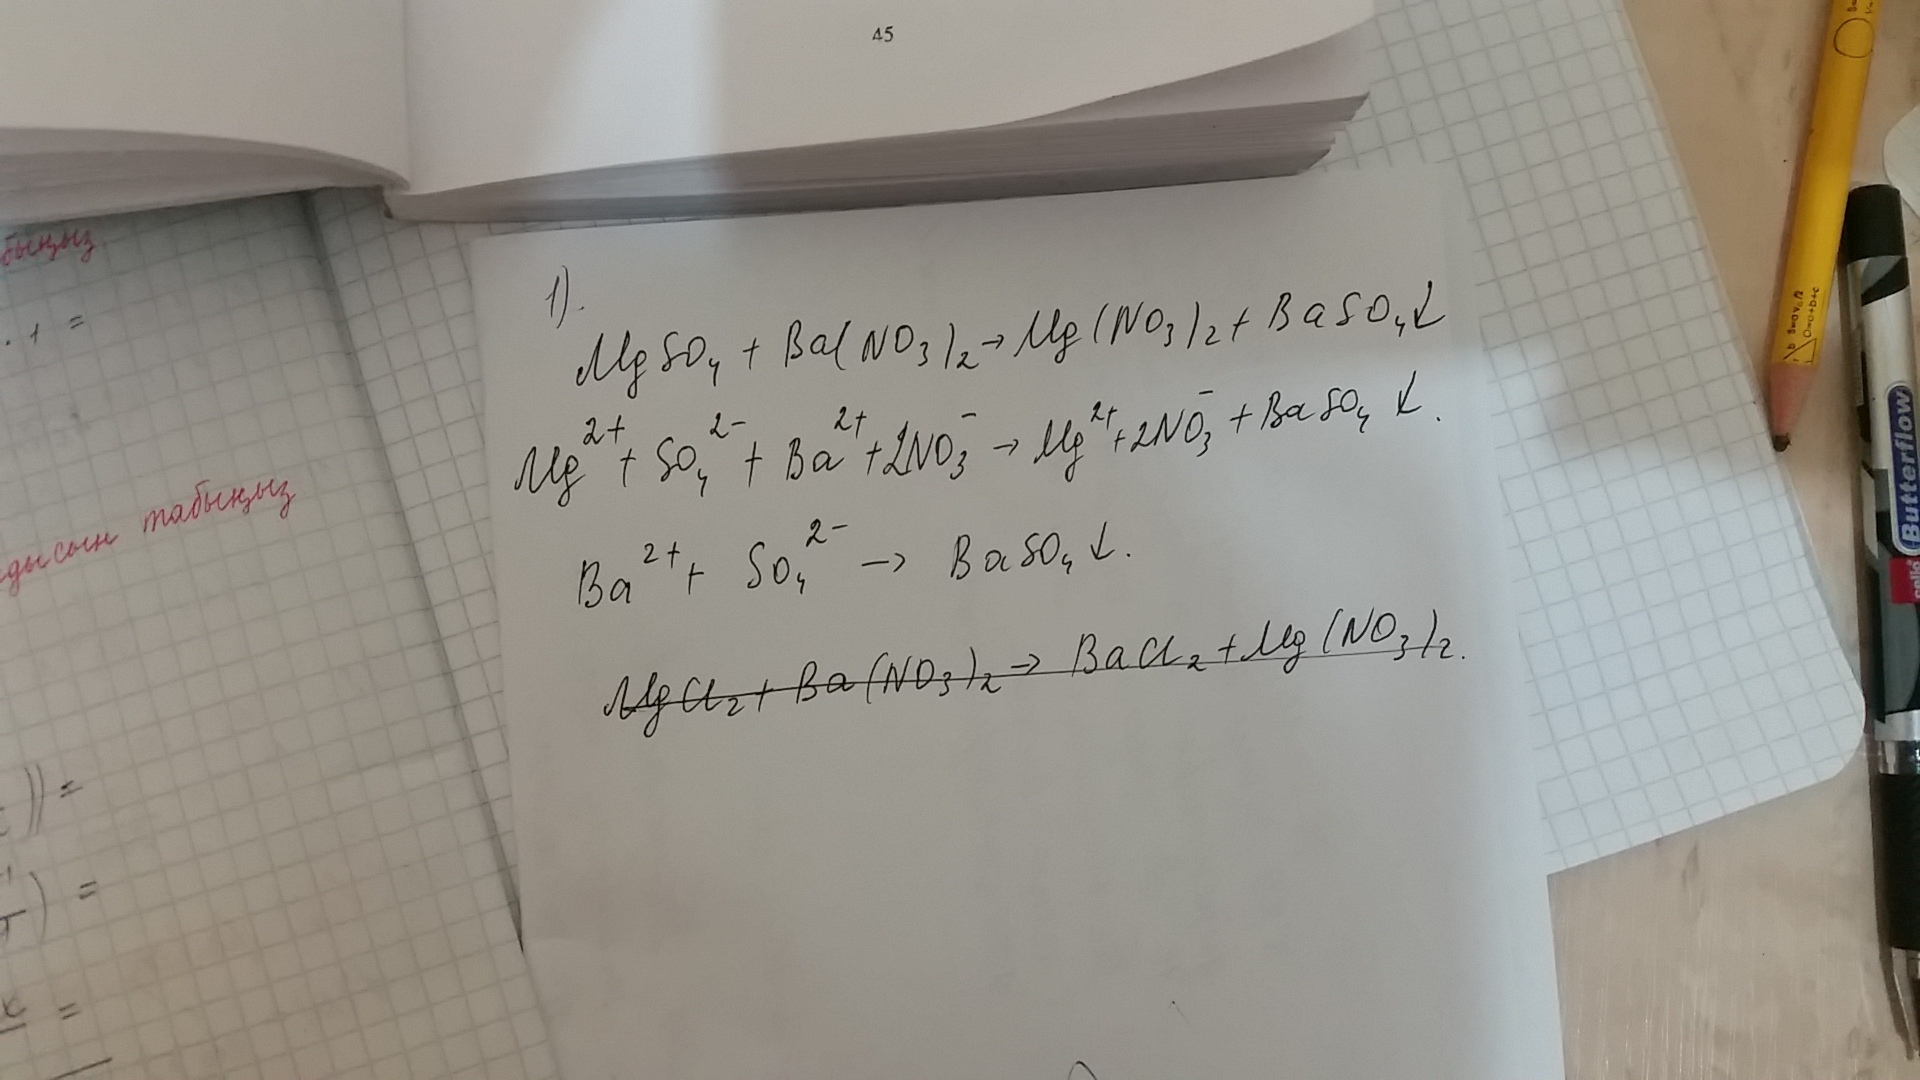 45
быңыз
. 1 =
дысын табыңыз
)) =
) =
=
1).
MgSO₄ + Ba(NO₃)₂ → Mg(NO₃)₂ + BaSO₄↓
Mg²⁺ + SO₄²⁻ + Ba²⁺ + 2NO₃⁻ → Mg²⁺ + 2NO₃⁻ + BaSO₄↓.
Ba²⁺ + SO₄²⁻ → BaSO₄↓.
MgCl₂ + Ba(NO₃)₂ → BaCl₂ + Mg(NO₃)₂.
Butterflow
cello